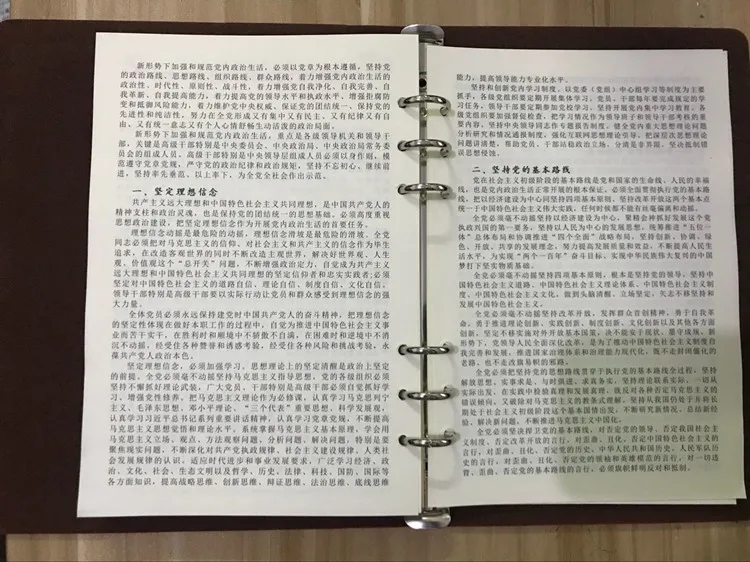 新形势下加强和规范党内政治生活，必须以党章为根本遵循，坚持党
的政治路线、思想路线、组织路线、群众路线，着力增强党内政治生活的
政治性、时代性、原则性、战斗性，着力增强党自我净化、自我完善、自
我革新、自我提高能力，着力提高党的领导水平和执政水平、增强拒腐防
变和抵御风险能力，着力维护党中央权威、保证党的团结统一、保持党的
先进性和纯洁性，努力在全党形成又有集中又有民主、又有纪律又有自
由、又有统一意志又有个人心情舒畅生动活泼的政治局面。
新形势下加强和规范党内政治生活，重点是各级领导机关和领导干
部，关键是高级干部特别是中央委员会、中央政治局、中央政治局常务委
员会的组成人员。高级干部特别是中央领导层组成人员必须以身作则，模
范遵守党章党规，严守党的政治纪律和政治规矩，坚持不忘初心、继续前
进，坚持率先垂范、以上率下，为全党全社会作出示范。
一、坚定理想信念
共产主义远大理想和中国特色社会主义共同理想，是中国共产党人的
精神支柱和政治灵魂，也是保持党的团结统一的思想基础。必须高度重视
思想政治建设，把坚定理想信念作为开展党内政治生活的首要任务。
理想信念动摇是最危险的动摇，理想信念滑坡是最危险的滑坡。全党
同志必须把对马克思主义的信仰、对社会主义和共产主义的信念作为毕生
追求，在改造客观世界的同时不断改造主观世界，解决好世界观、人生
观、价值观这个“总开关”问题，不断增强政治定力，自觉成为共产主义
远大理想和中国特色社会主义共同理想的坚定信仰者和忠实实践者；必须
坚定对中国特色社会主义的道路自信、理论自信、制度自信、文化自信。
领导干部特别是高级干部要以实际行动让党员和群众感受到理想信念的强
大力量。
全体党员必须永远保持建党时中国共产党人的奋斗精神，把理想信念
的坚定性体现在做好本职工作的过程中，自觉为推进中国特色社会主义事
业而苦干实干，在胜利时和顺境中不骄傲不自满，在困难时和逆境中不消
沉不动摇，经受住各种赞誉和诱惑考验，经受住各种风险和挑战考验，永
葆共产党人政治本色。
坚定理想信念，必须加强学习。思想理论上的坚定清醒是政治上坚定
的前提。全党必须毫不动摇坚持马克思主义指导思想，党的各级组织必须
坚持不懈抓好理论武装，广大党员、干部特别是高级干部必须自觉抓好学
习、增强党性修养。把马克思主义理论作为必修课，认真学习马克思列宁
主义、毛泽东思想、邓小平理论、“三个代表”重要思想、科学发展观，
认真学习习近平总书记系列重要讲话精神，认真学习党章党规，不断提高
马克思主义思想觉悟和理论水平。系统掌握马克思主义基本原理，学会用
马克思主义立场、观点、方法观察问题、分析问题、解决问题，特别是要
聚焦现实问题，不断深化对共产党执政规律、社会主义建设规律、人类社
会发展规律的认识。适应时代进步和事业发展要求，广泛学习经济、政
治、文化、社会、生态文明以及哲学、历史、法律、科技、国防、国际等
各方面知识，提高战略思维、创新思维、辩证思维、法治思维、底线思维
能力，提高领导能力专业化水平。
坚持和创新党内学习制度。以党委（党组）中心组学习等制度为主要
抓手，各级党组织要定期开展集体学习。党员、干部每年要完成规定的学
习任务，领导干部要定期参加党校学习。坚持开展党内集中学习教育。各
级党组织要加强督促检查，把学习情况作为领导班子和领导干部考核的重
要内容。坚持中央领导同志作专题报告制度。健全党内重大思想理论问题
分析研究和情况通报制度，强化互联网思想理论引导，把深层次思想理论
问题讲清楚，帮助党员、干部站稳政治立场，分清是非界限，坚决抵制错
误思想侵蚀。
二、坚持党的基本路线
党在社会主义初级阶段的基本路线是党和国家的生命线、人民的幸福
线，也是党内政治生活正常开展的根本保证。必须全面贯彻执行党的基本路
线，把以经济建设为中心同坚持四项基本原则、坚持改革开放这两个基本点
统一于中国特色社会主义伟大实践，任何时候都不能有丝毫偏离和动摇。
全党必须毫不动摇坚持以经济建设为中心，聚精会神抓好发展这个党
执政兴国的第一要务，坚持以人民为中心的发展思想，统筹推进“五位一
体”总体布局和协调推进“四个全面”战略布局，坚持创新、协调、绿
色、开放、共享的发展理念，努力提高发展质量和效益，不断提高人民生
活水平，为实现“两个一百年”奋斗目标、实现中华民族伟大复兴的中国
梦打下坚实物质基础。
全党必须毫不动摇坚持四项基本原则，根本是坚持党的领导，坚持中
国特色社会主义道路、中国特色社会主义理论体系、中国特色社会主义制
度、中国特色社会主义文化，做到头脑清醒、立场坚定，矢志不移坚持和
发展中国特色社会主义。
全党必须毫不动摇坚持改革开放，发挥群众首创精神，勇于自我革
命，勇于推进理论创新、实践创新、制度创新、文化创新以及其他各方面
创新，坚定不移实施对外开放基本国策，决不能安于现状、墨守成规。新
形势下，党领导人民全面深化改革，是为了推动中国特色社会主义制度自
我完善和发展，推进国家治理体系和治理能力现代化，既不走封闭僵化的
老路，也不走改旗易帜的邪路。
全党必须把坚持党的思想路线贯穿于执行党的基本路线全过程，坚持
解放思想、实事求是、与时俱进、求真务实，坚持理论联系实际，一切从
实际出发，在实践中检验真理和发展真理，既反对各种否定马克思主义的
错误倾向，又破除对马克思主义的教条式理解。坚持从我国仍处于并将长
期处于社会主义初级阶段这个基本国情出发，不断研究新情况、总结新经
验、解决新问题，不断推进马克思主义中国化。
全党必须坚决捍卫党的基本路线，对否定党的领导、否定我国社会主
义制度、否定改革开放的言行，对歪曲、丑化、否定中国特色社会主义的
言行，对歪曲、丑化、否定党的历史、中华人民共和国历史、人民军队历
史的言行，对歪曲、丑化、否定党的领袖和英雄模范的言行，对一切违
背、歪曲、否定党的基本路线的言行，必须旗帜鲜明反对和抵制。